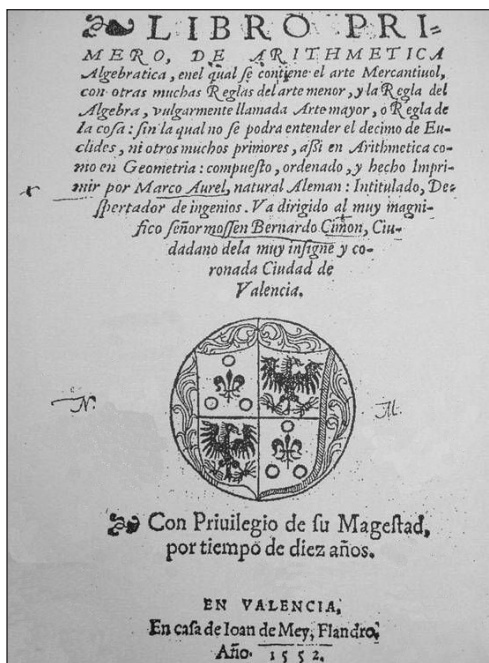 LIBRO PRI=
MERO, DE ARITHMETICA
Algebratica, enel qual se contiene el arte Mercantiuol,
con otras muchas Reglas del arte menor, y la Regla del
Algebra, vulgarmente llamada Arte mayor, o Regla de
la cosa: sin la qual no se podra entender el decimo de Eu-
clides, ni otros muchos primores, assi en Arithmetica co-
mo en Geometria: compuesto, ordenado, y hecho Impri-
mir por Marco Aurel, natural Aleman: Intitulado, De=
spertador de ingenios. Va dirigido al muy magni-
fico señor mossen Bernardo Cimon, Ciu-
dadano dela muy insigne y co-
ronada Ciudad de
Valencia.
N.
Con Priuilegio de su Magestad,
por tiempo de diez años.
EN VALENCIA,
En casa de Ioan de Mey, Flandro,
Año. 1552.